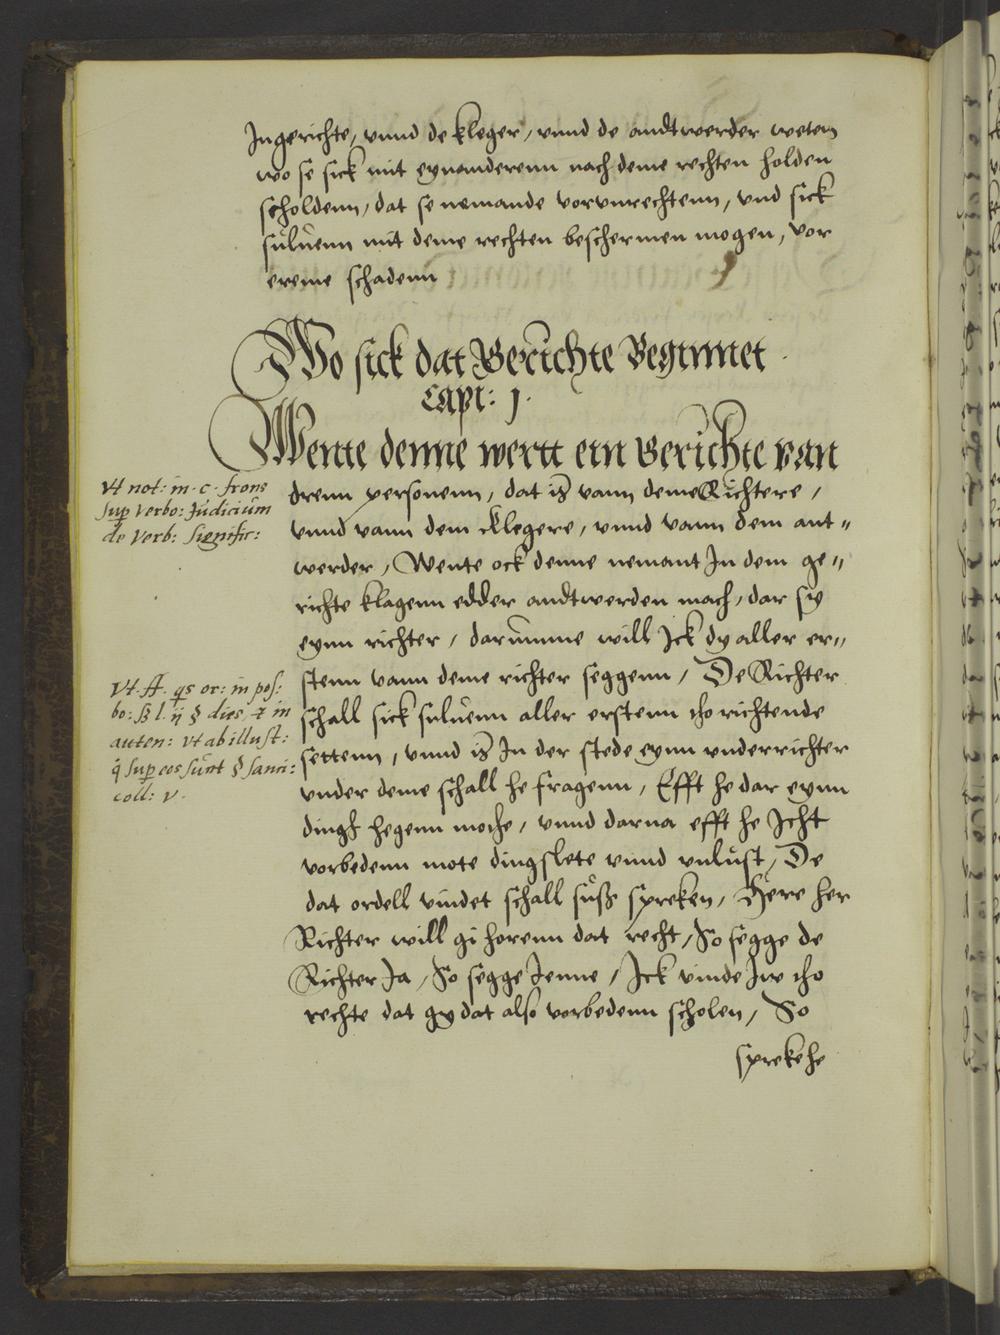 Jn gerichte, vnnd de kleger, vnnd de andtwerder weten
wo se sick mit eynanderenn nach deme rechten holden
scholdenn, dat se nemande vorvnrechtenn, vnd sick
sulůenn mit deme rechten beschermen mogen, vor
ereme schadenn
Wo sick dat Gerichte Beginnet
Capt: j.
Wente denne wertt ein Gerichte van
vt not: in. c. frons
sup verbo: Judiciům
de verb: signific:
drenn personenn, dat iß vann deme Richtere,
vnnd vann dem Klegere, vnnd vann dem ant"
werder, Wente ock denne nemant Jn dem ge"
richte klagenn edder andtwerden mach, dar sy
eynn richter, darůmme will Jck dy aller er"
stenn vann deme richter seggenn, De Richter
schall sick suluenn aller erstenn tho richtende
settenn, vnnd iß Jn der stede eynn vnderrichter
vnder deme schall he fragenn, Efft he dar eynn
dingk hegenn moche, vnnd darna efft he Jcht
vorbedenn mote dingslete vnnd vnlůst, De
dat ordell vindet schall sůß spreken, Here her
Richter will gi horenn dat recht, So segge de
Richter Ja, So segge Jenne, Jck vinde Jw tho
rechte dat gy dat also vorbedenn scholen, So
vt ff. qs or: in pos:
bo: ß l. ij § dies, et in
auten: vt ab illust:
q sup eos sunt § sanci:
coll: v.
spreke he